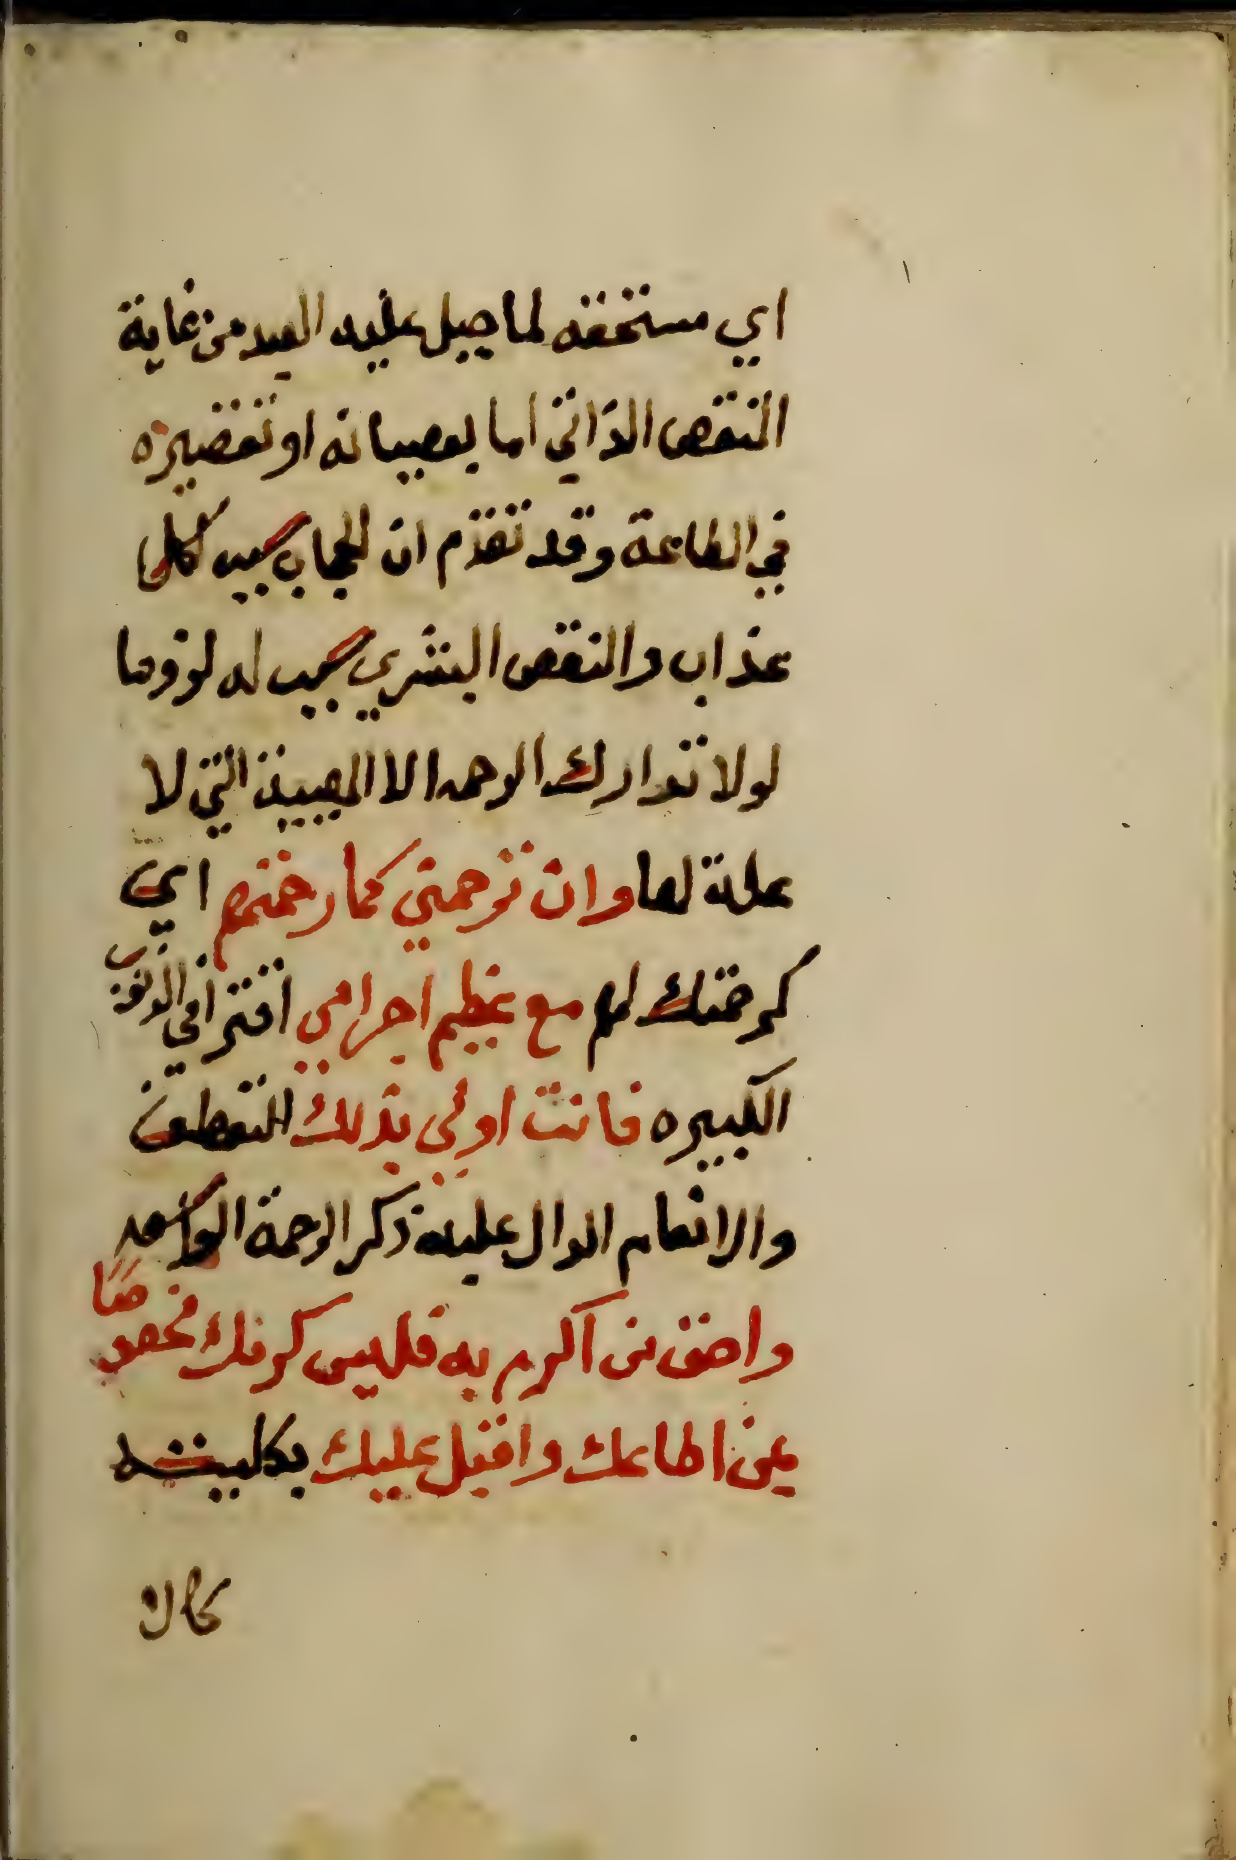 اي مستحقه لما جبل عليه العبد من غاية
النقص الذاتي اما بعصيانه او تقصيره
في الطاعة وقد تقدم ان الحجاب سبب لكل
عذاب والنقص البشري سبب له لزوما
لولا تدارك الرحمه الا الهيية التي لا
علة لها وان ترحمني كما رحمتهم اي
كرحمتك لهم مع عظيم اجرامي اقترافي الذنوب
الكبيره فانت اولى بذلك التعطف
والانعام الدال عليه ذكر الرحمة الواسعه
واحق من اكرم به فليس كرمك مخصوصا
بمن اطاعك واقبل عليك بكليته
كان